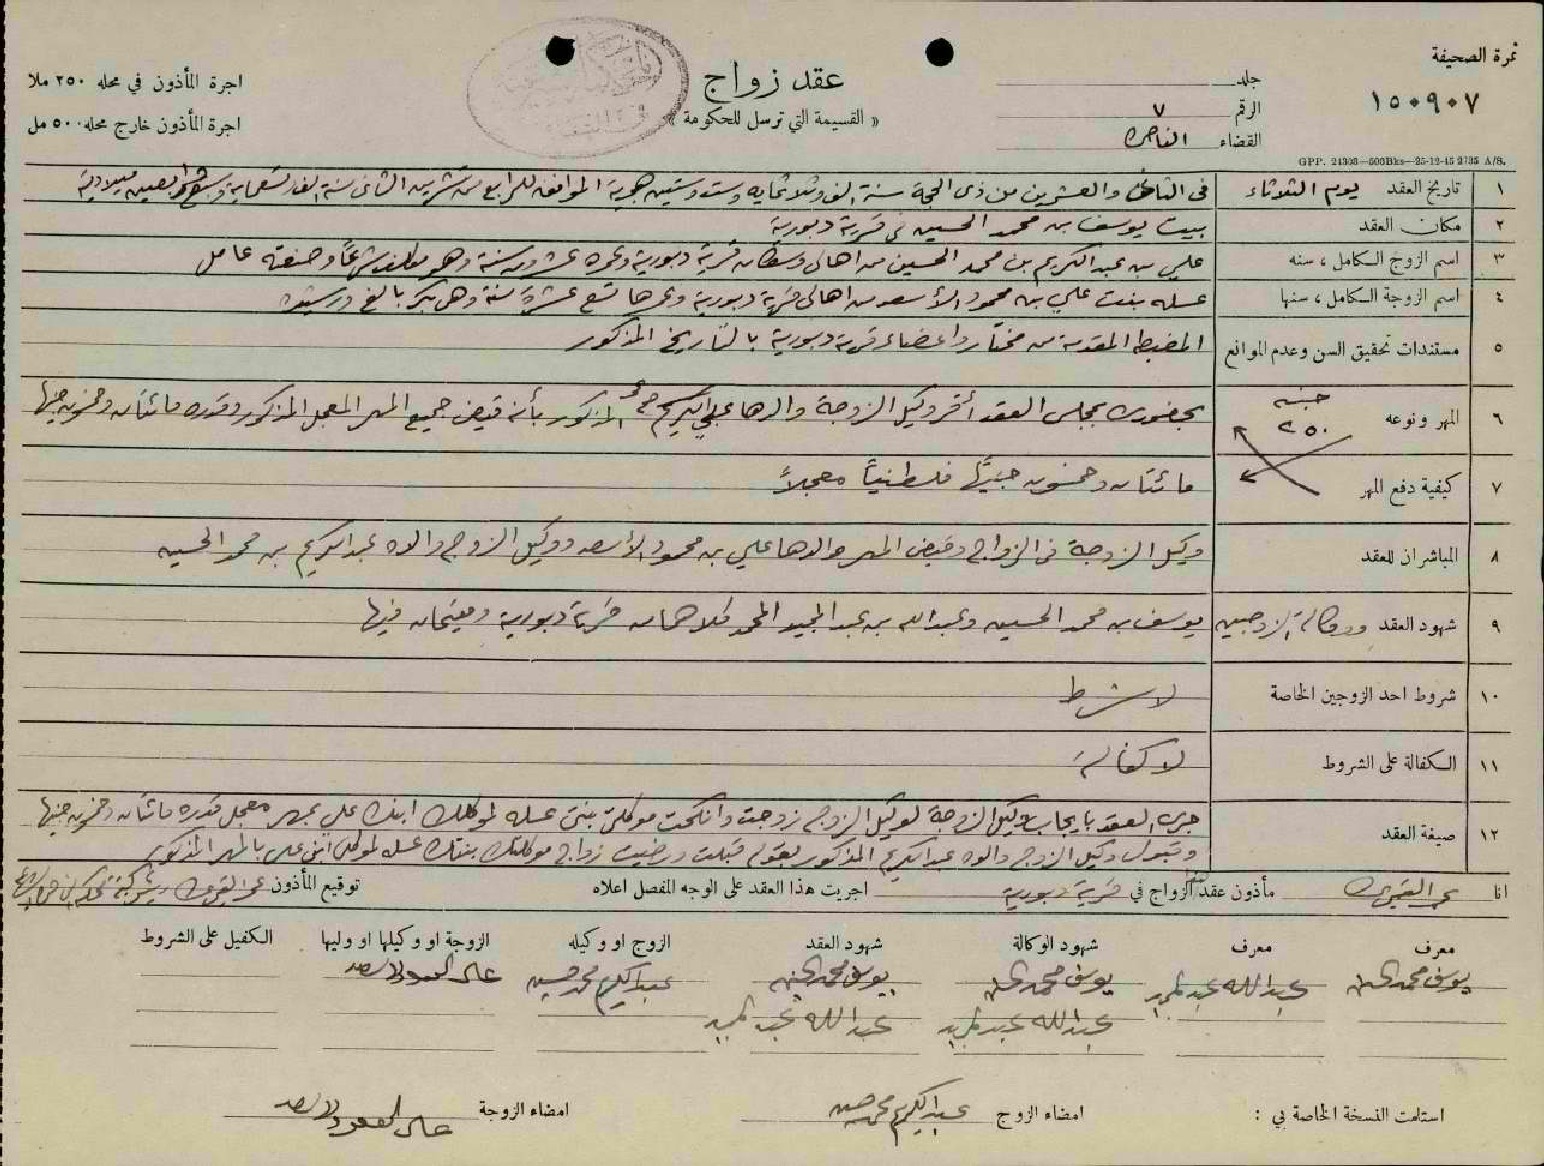 نمرة الصحيفة
١٥٠٩٠٧
جلد
الرقم ٧
القضاء الناصره
عقد زواج
« القسيمة التي ترسل للحكومة »
اجرة المأذون في محله ٢٥٠ ملا
اجرة المأذون خارج محله ٥٠٠ مل
GPP. 24303—600Bks—25-12-45 2735 A/S.
١ تاريخ العقد يوم الثلاثاء في الثامن والعشرين من ذى الحجة سنة الف وثلاثمايه وست وستين هجرية الموافق للرابع من تشرين الثاني سنة الف وتسعماية وسبع واربعين ميلادية
٢ مكان العقد بيت يوسف بن محمد الحسين في قرية دبورية
٣ اسم الزوج الكامل ، سنه علي بن عبد الكريم بن محمد الحسين من اهالي وسكان قرية دبورية وعمره عشرون سنة وهو مكلف شرعاً وصنعته عامل
٤ اسم الزوجة الكامل ، سنها عسله بنت علي بن محمود الأسعد من اهالي قرية دبورية وعمرها تسع عشرة سنة وهي بكر بالغ ورشيده
٥ مستندات تحقيق السن وعدم الموانع المضبطه المقدمة من مختار واعضاء قرية دبورية بالتاريخ المذكور
٦ المهر ونوعه جنيه ٢٥٠ بحضوره بمجلس العقد أقر وكيل الزوجة والدها علي المذكور بأنه قبض جميع المهر المعجل المذكور وقدره مائتان وخمسون جنيها
٧ كيفية دفع المهر مائتان وخمسون جنيهاً فلسطينياً معجلاً
٨ المباشران للعقد وكيل الزوجة في الزواج وقبض المهر والدها علي بن محمود الأسعد ووكيل الزوج والده عبد الكريم بن محمد الحسين
٩ شهود العقد ووكالة الزوجين يوسف بن محمد الحسين وعبد الله بن عبد المجيد المحمد كلاهما من قرية دبورية ومقيمان فيها
١٠ شروط احد الزوجين الخاصة لا شرط
١١ الكفالة على الشروط لا كفالة
١٢ صيغة العقد جرى العقد بايجاب وكيل الزوجة لوكيل الزوج زوجت وانكحت موكلتي بنتي عسله لموكلك ابنك علي بمهر معجل قدره مائتان وخمسون جنيها
وقبول وكيل الزوج والده عبد الكريم المذكور بقوله قبلت ورضيت زواج موكلتك بنتك عسله لموكلي ابني علي بالمهر المذكور
انا مأذون عقد الزواج في قرية دبورية اجريت هذا العقد على الوجه المفصل اعلاه توقيع المأذون
معرف معرف شهود الوكالة شهود العقد الزوج او وكيله الزوجة او وكيلها او وليها الكفيل على الشروط
يوسف محمد الحسين عبد الله عبد المجيد يوسف محمد الحسين يوسف محمد الحسين عبد الكريم محمد حسين علي المحمود الاسعد
عبد الله عبد المجيد عبد الله عبد المجيد
استلمت النسخة الخاصة بي : امضاء الزوج عبد الكريم محمد حسين امضاء الزوجة علي المحمود الاسعد